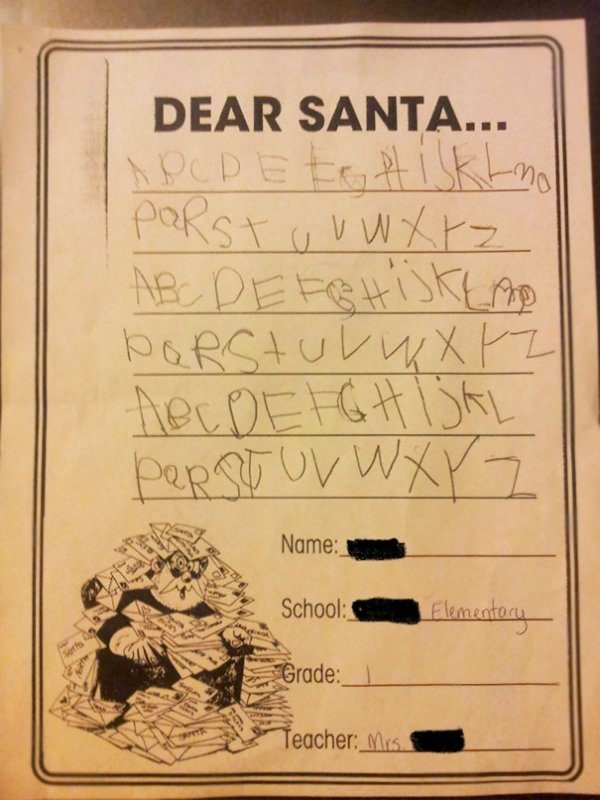 DEAR SANTA...
A B C D E F G H i j K L m o
P Q R S t u v W X Y Z
A B C D E F G H i j K L m o
P Q R S t U V W X Y Z
A B C D E F G H i j K L
P Q R S T U V W X Y Z
Name:
School: Elementary
Grade: 1
Teacher: Mrs.
SANTA